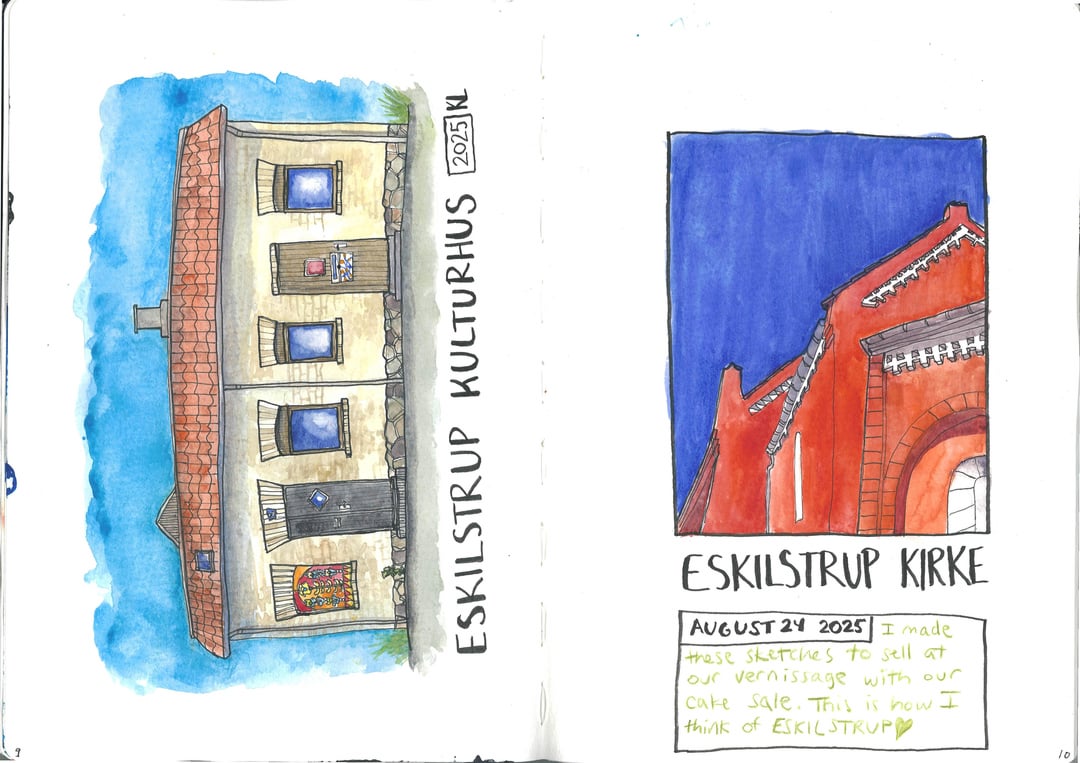 ESKILSTRUP KULTURHUS 2025 KL
9
ESKILSTRUP KIRKE
AUGUST 24 2025 I made
these sketches to sell at
our vernissage with our
cake sale. This is how I
think of ESKILSTRUP
10